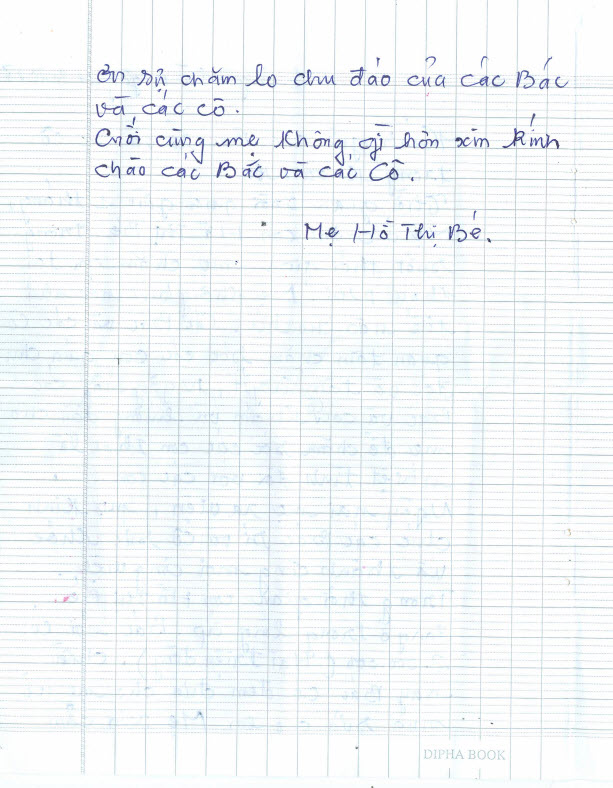 ơn sự chăm lo chu đáo của các Bác
và các cô.
Cuối cùng mẹ không gì hơn xin kính
chào các Bác và các Cô.
Mẹ Hồ Thị Bé.
DIPHA BOOK